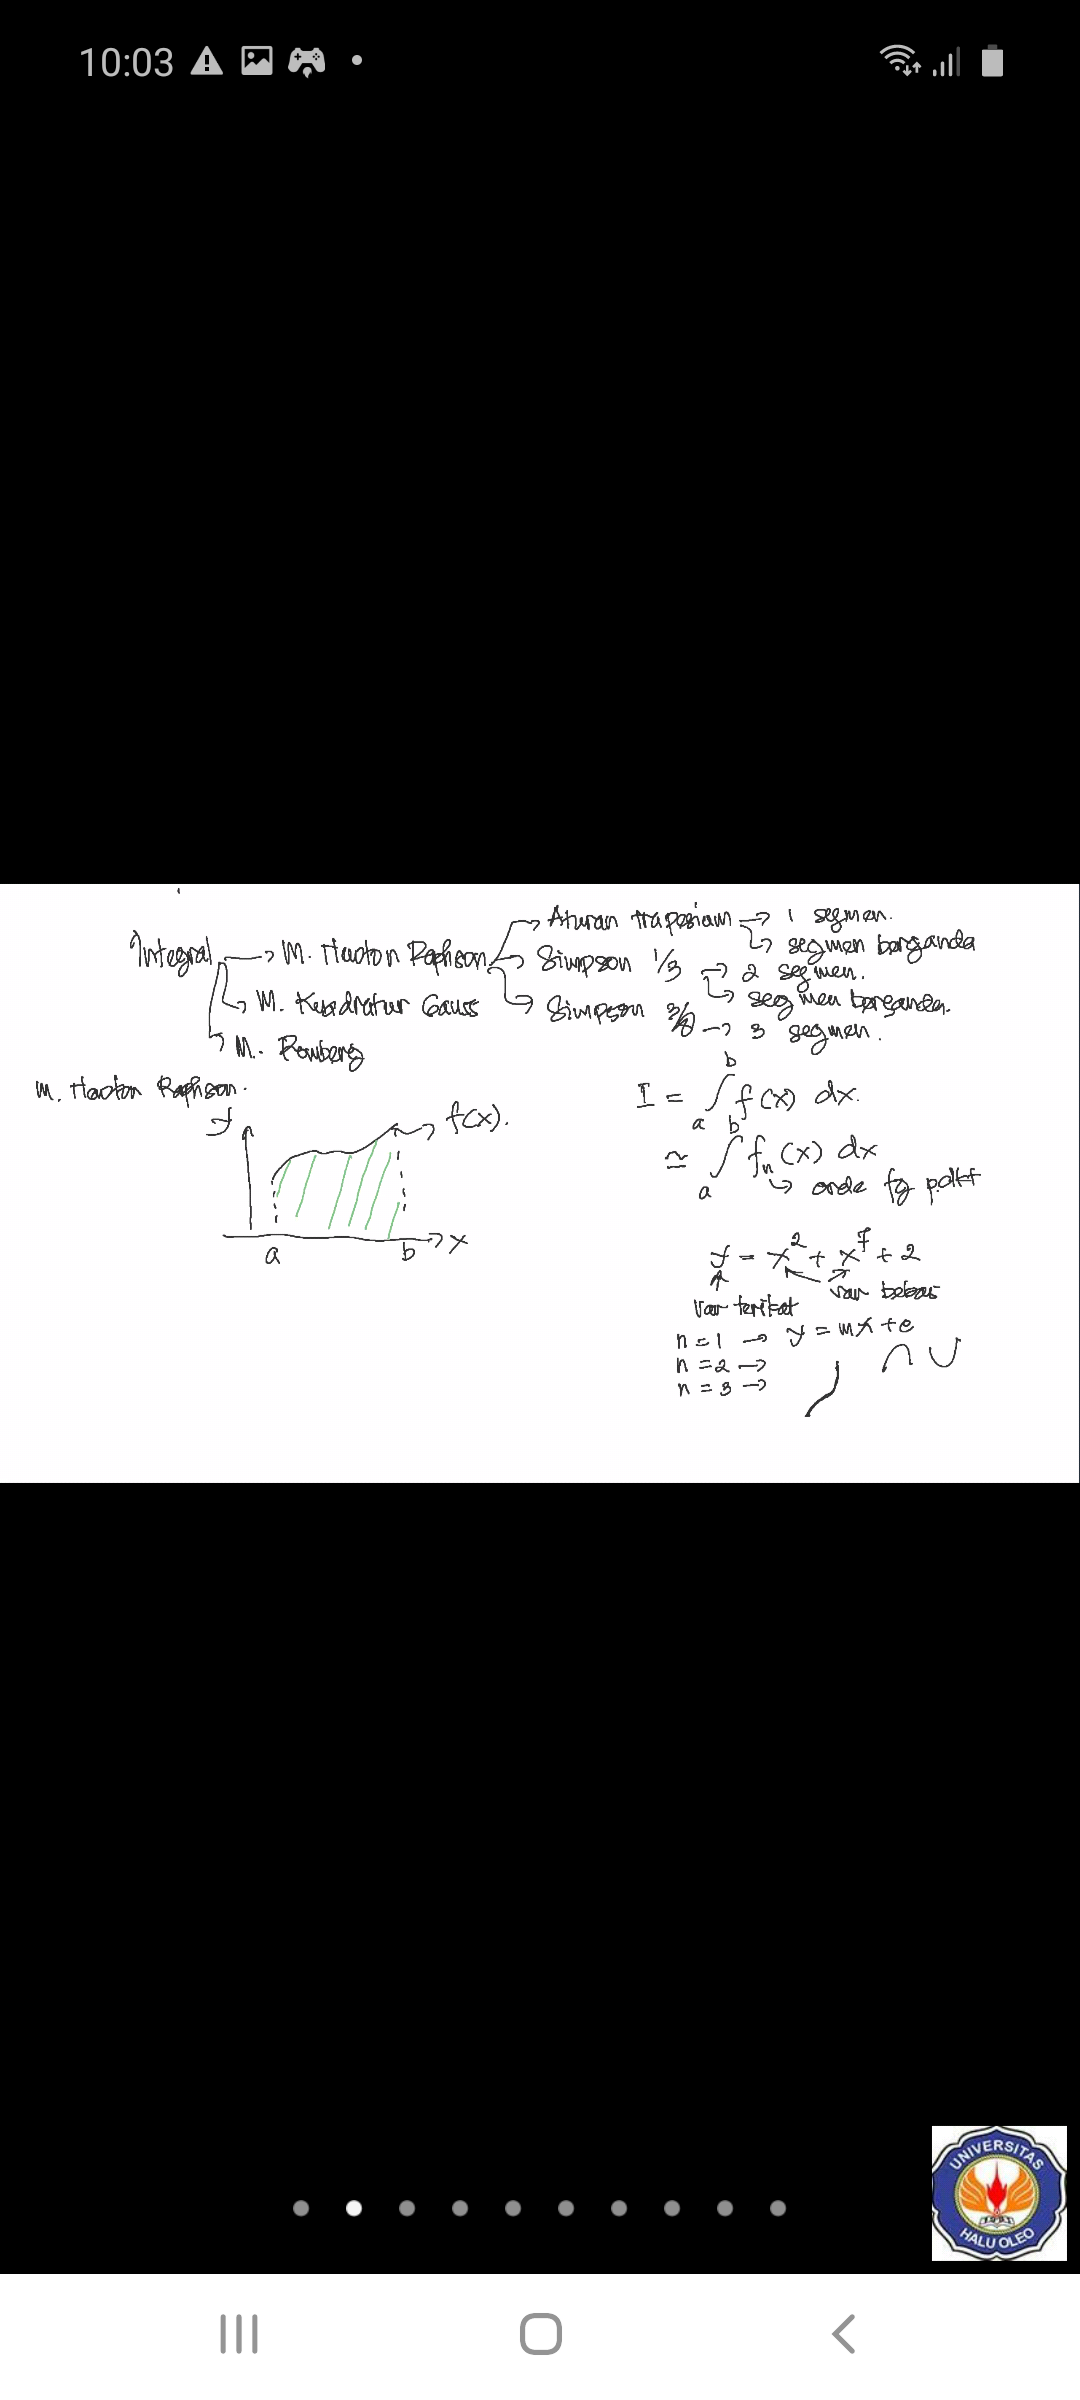 10:03
Integral → M. Newton Raphson → Aturan trapesium → 1 segmen.
↳ segmen berganda
→ Simpson 1/3 → 2 segmen.
↳ segmen berganda.
→ Simpson 3/8 → 3 segmen.
↳ M. Kuadratur Gauss
↳ M. Romberg
M. Newton Raphson.
y
f(x).
a b x
I = ∫ₐᵇ f(x) dx.
≃ ∫ₐᵇ fₙ(x) dx
↳ orde
y = x² + x⁷ + 2
var terikat
var bebas
n = 1 → y = mx + c
n = 2 →
n = 3 →
UNIVERSITAS
HALU OLEO